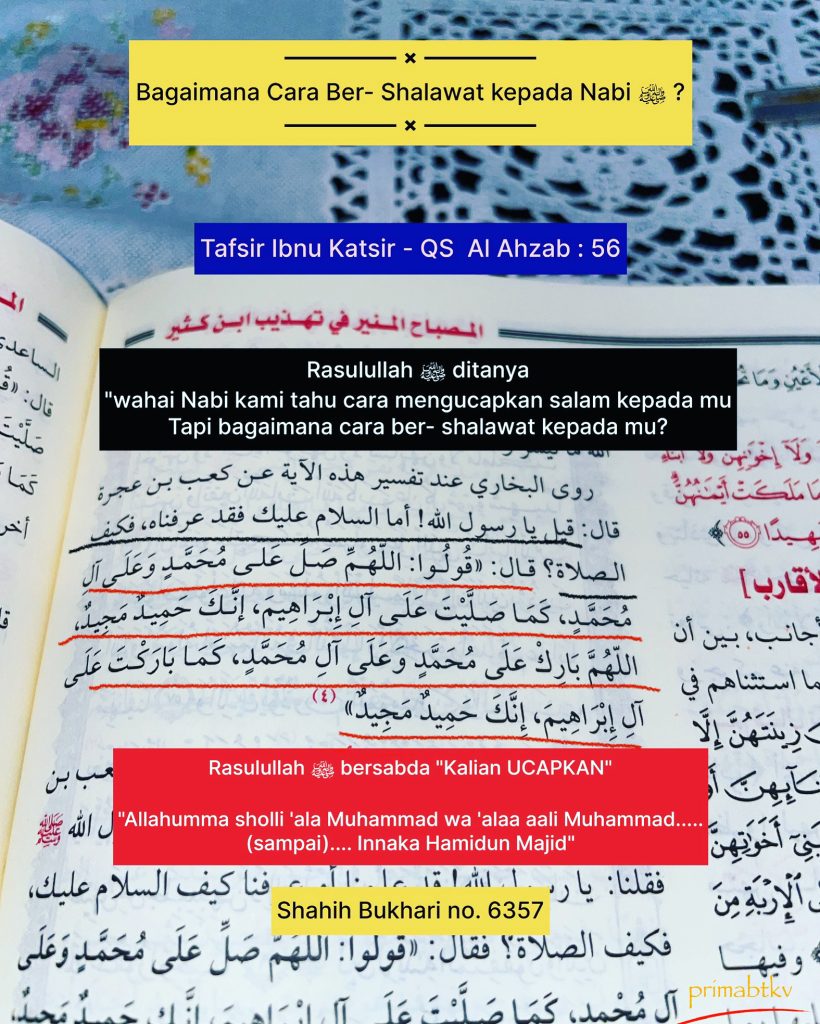 Bagaimana Cara Ber- Shalawat kepada Nabi ﷺ ?
Tafsir Ibnu Katsir - QS Al Ahzab : 56
المصباح المنير في تهذيب ابن كثير
Rasulullah ﷺ ditanya
"wahai Nabi kami tahu cara mengucapkan salam kepada mu
Tapi bagaimana cara ber- shalawat kepada mu?
روى البخاري عند تفسير هذه الآية عن كعب بن عجرة
قال: قيل يا رسول الله! أما السلام عليك فقد عرفناه، فكيف
الصلاة؟ قال: «قُولُوا: اللَّهُمَّ صَلِّ عَلَى مُحَمَّدٍ وَعَلَى آلِ
مُحَمَّدٍ، كَمَا صَلَّيْتَ عَلَى آلِ إِبْرَاهِيمَ، إِنَّكَ حَمِيدٌ مَجِيدٌ،
اللَّهُمَّ بَارِكْ عَلَى مُحَمَّدٍ وَعَلَى آلِ مُحَمَّدٍ، كَمَا بَارَكْتَ عَلَى
آلِ إِبْرَاهِيمَ، إِنَّكَ حَمِيدٌ مَجِيدٌ» (٤)
Rasulullah ﷺ bersabda "Kalian UCAPKAN"
"Allahumma sholli 'ala Muhammad wa 'alaa aali Muhammad.....
(sampai).... Innaka Hamidun Majid"
فقلنا: يا رسول الله! قد علمنا كيف السلام عليك،
Shahih Bukhari no. 6357
فكيف الصلاة؟ فقال: «قُولُوا: اللَّهُمَّ صَلِّ عَلَى مُحَمَّدٍ وَعَلَى
آلِ مُحَمَّدٍ، كَمَا صَلَّيْتَ عَلَى آلِ إِبْرَاهِيمَ، إِنَّكَ حَمِيدٌ مَجِيدٌ،
الساعدي
قال: «
صَلَّيْتَ
وَلَآ إِخْوَٰنِهِنَّ وَلَآ أَبْنَآءِ
مَا مَلَكَتْ أَيْمَٰنُهُنَّ
شَهِيدًا ٥٥
الأقارب]
أجانب، بين أن
ما استثناهم في
زِينَتَهُنَّ إِلَّا
أَخَوَٰتِهِنَّ
ٱلْإِرْبَةِ مِنَ
وفيها
primabtkv